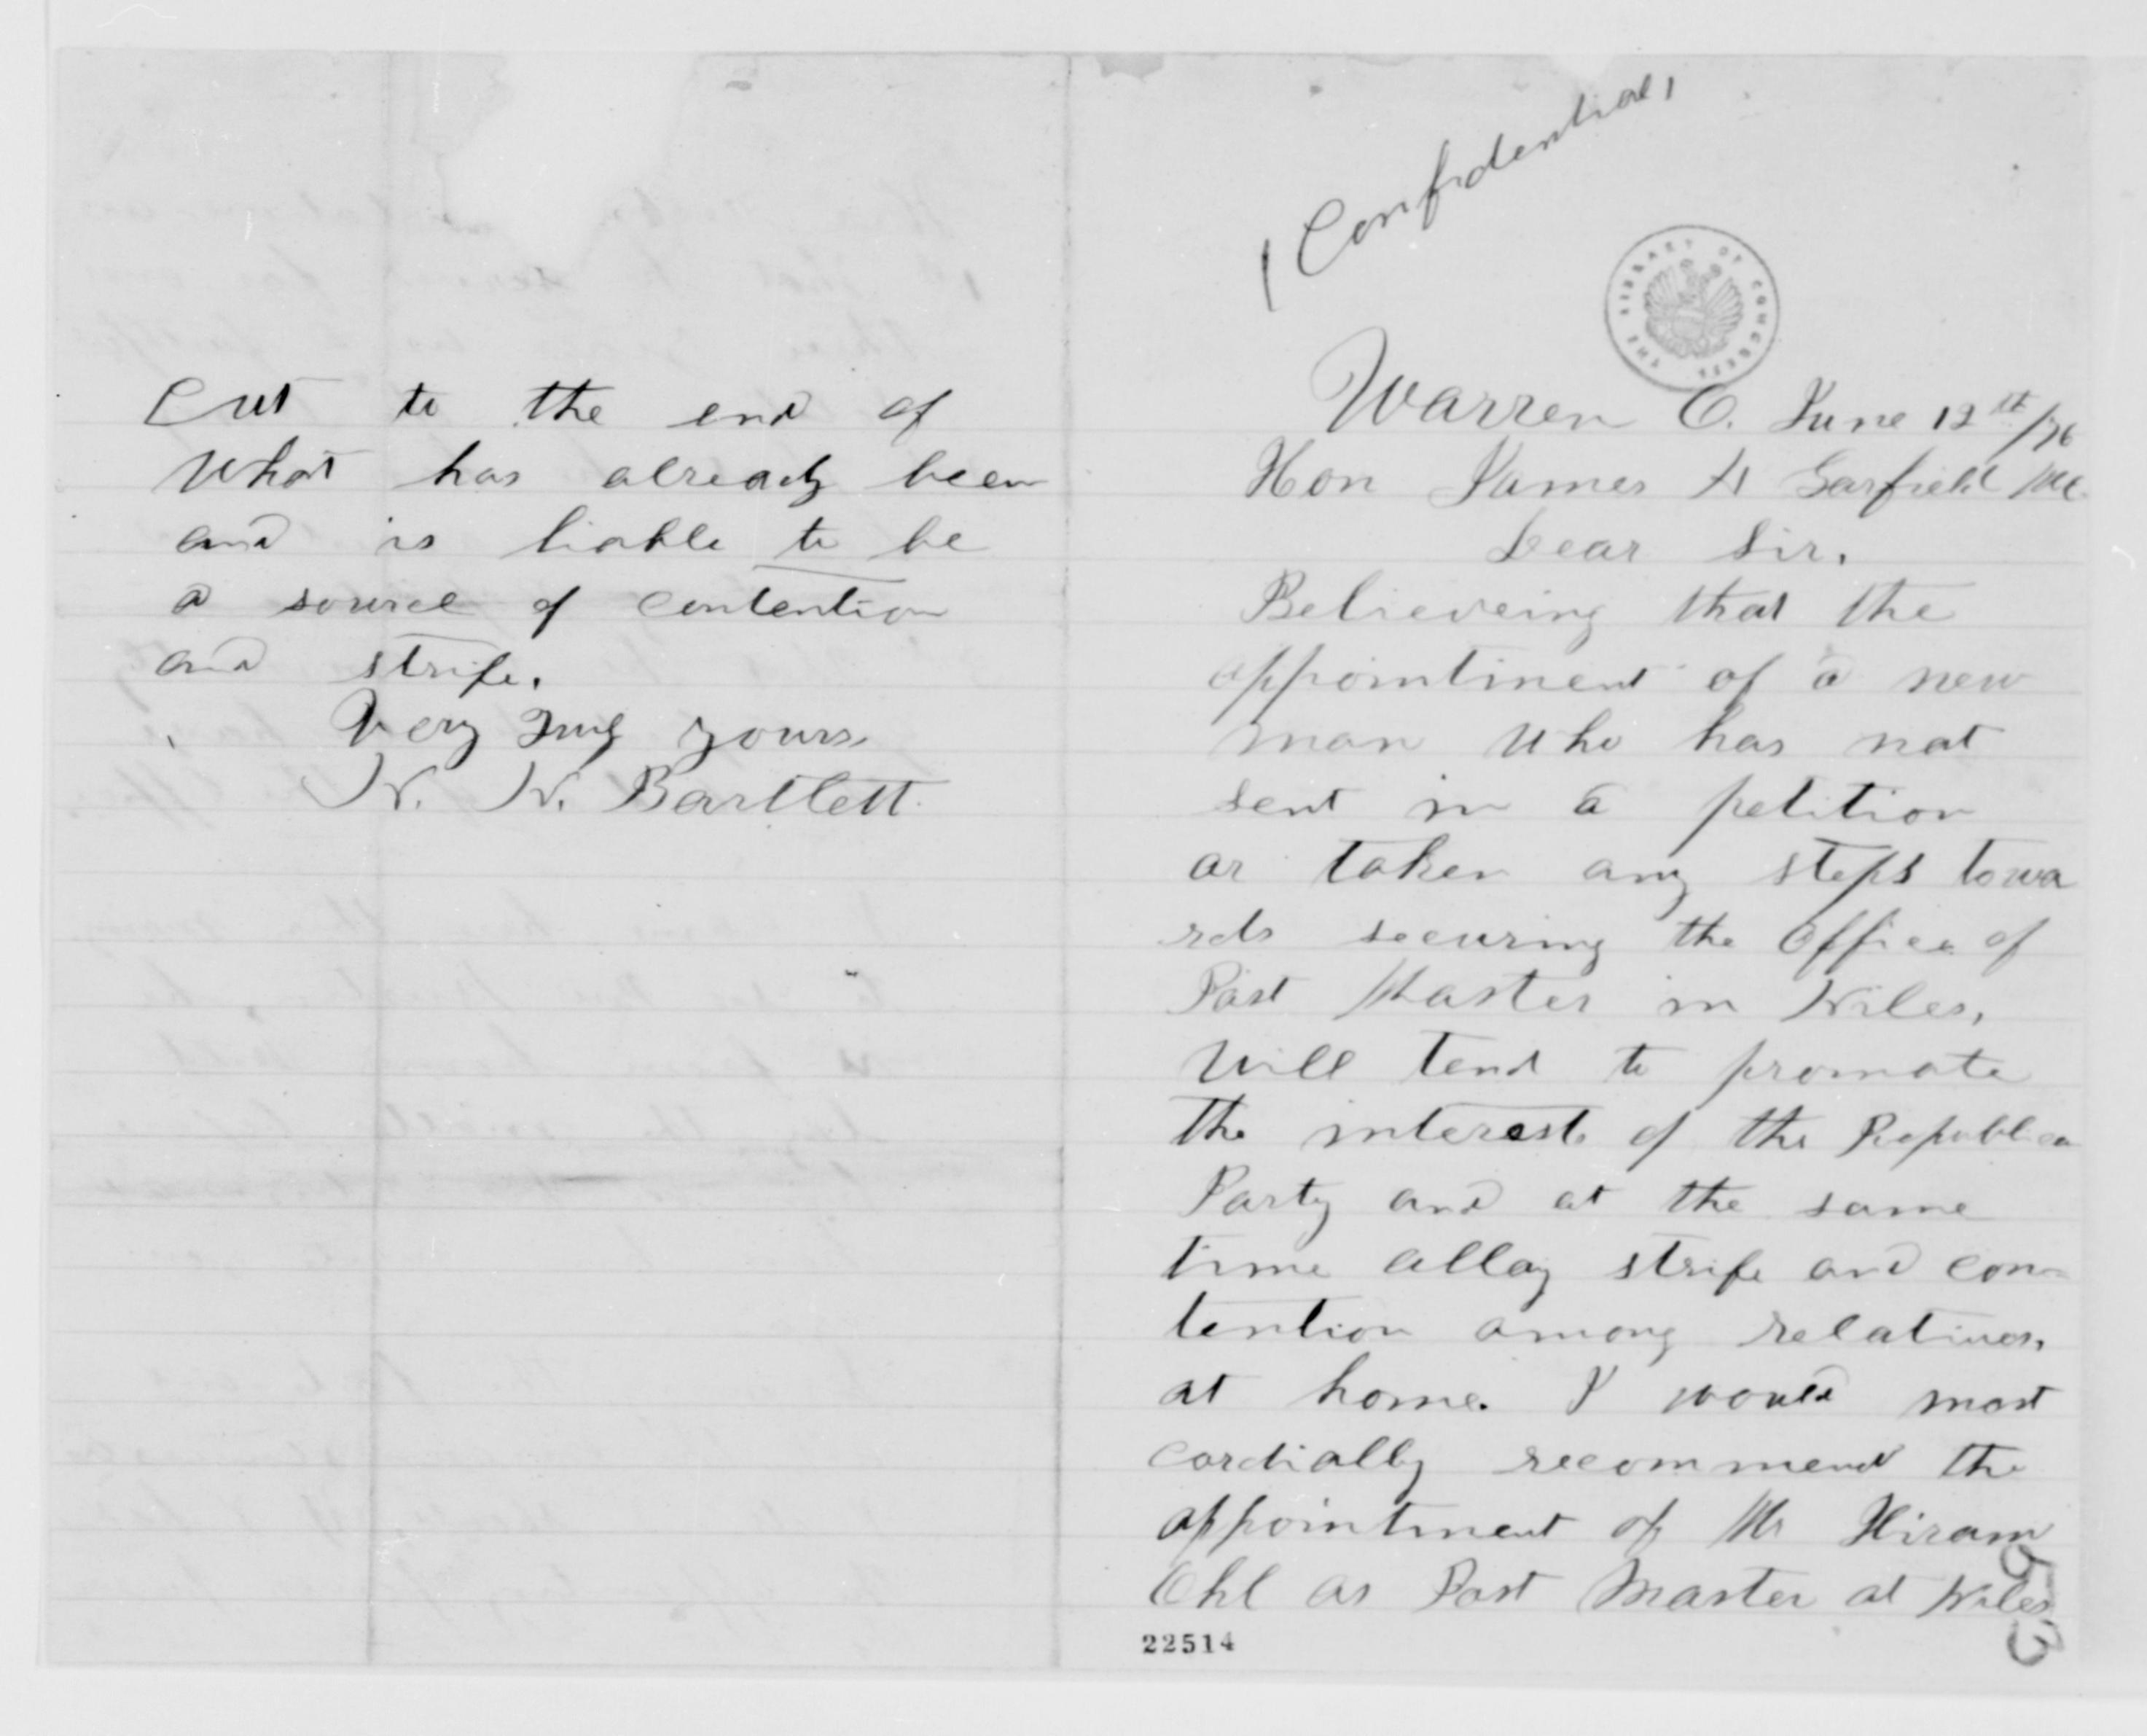 cut to the end of
what has already been
and is liable to be
a source of contention
and strife.
Very Truly yours
N. N. Bartlett.
(Confidential)
THE LIBRARY OF CONGRESS
Warren O. June 12th/76
Hon James A Garfield MC.
Dear Sir.
Believeing that the
appointment of a new
man who has not
sent in a petition
or taken any steps towa
rds securing the Office of
Post Master in Niles,
Will tend to promote
the interests of the Republican
Party and at the same
time allay strife and con-
tention among relatives,
at home. I would most
cordially recommend the
appointment of Mr Hiram
Ohl as Post Master at Niles
22514